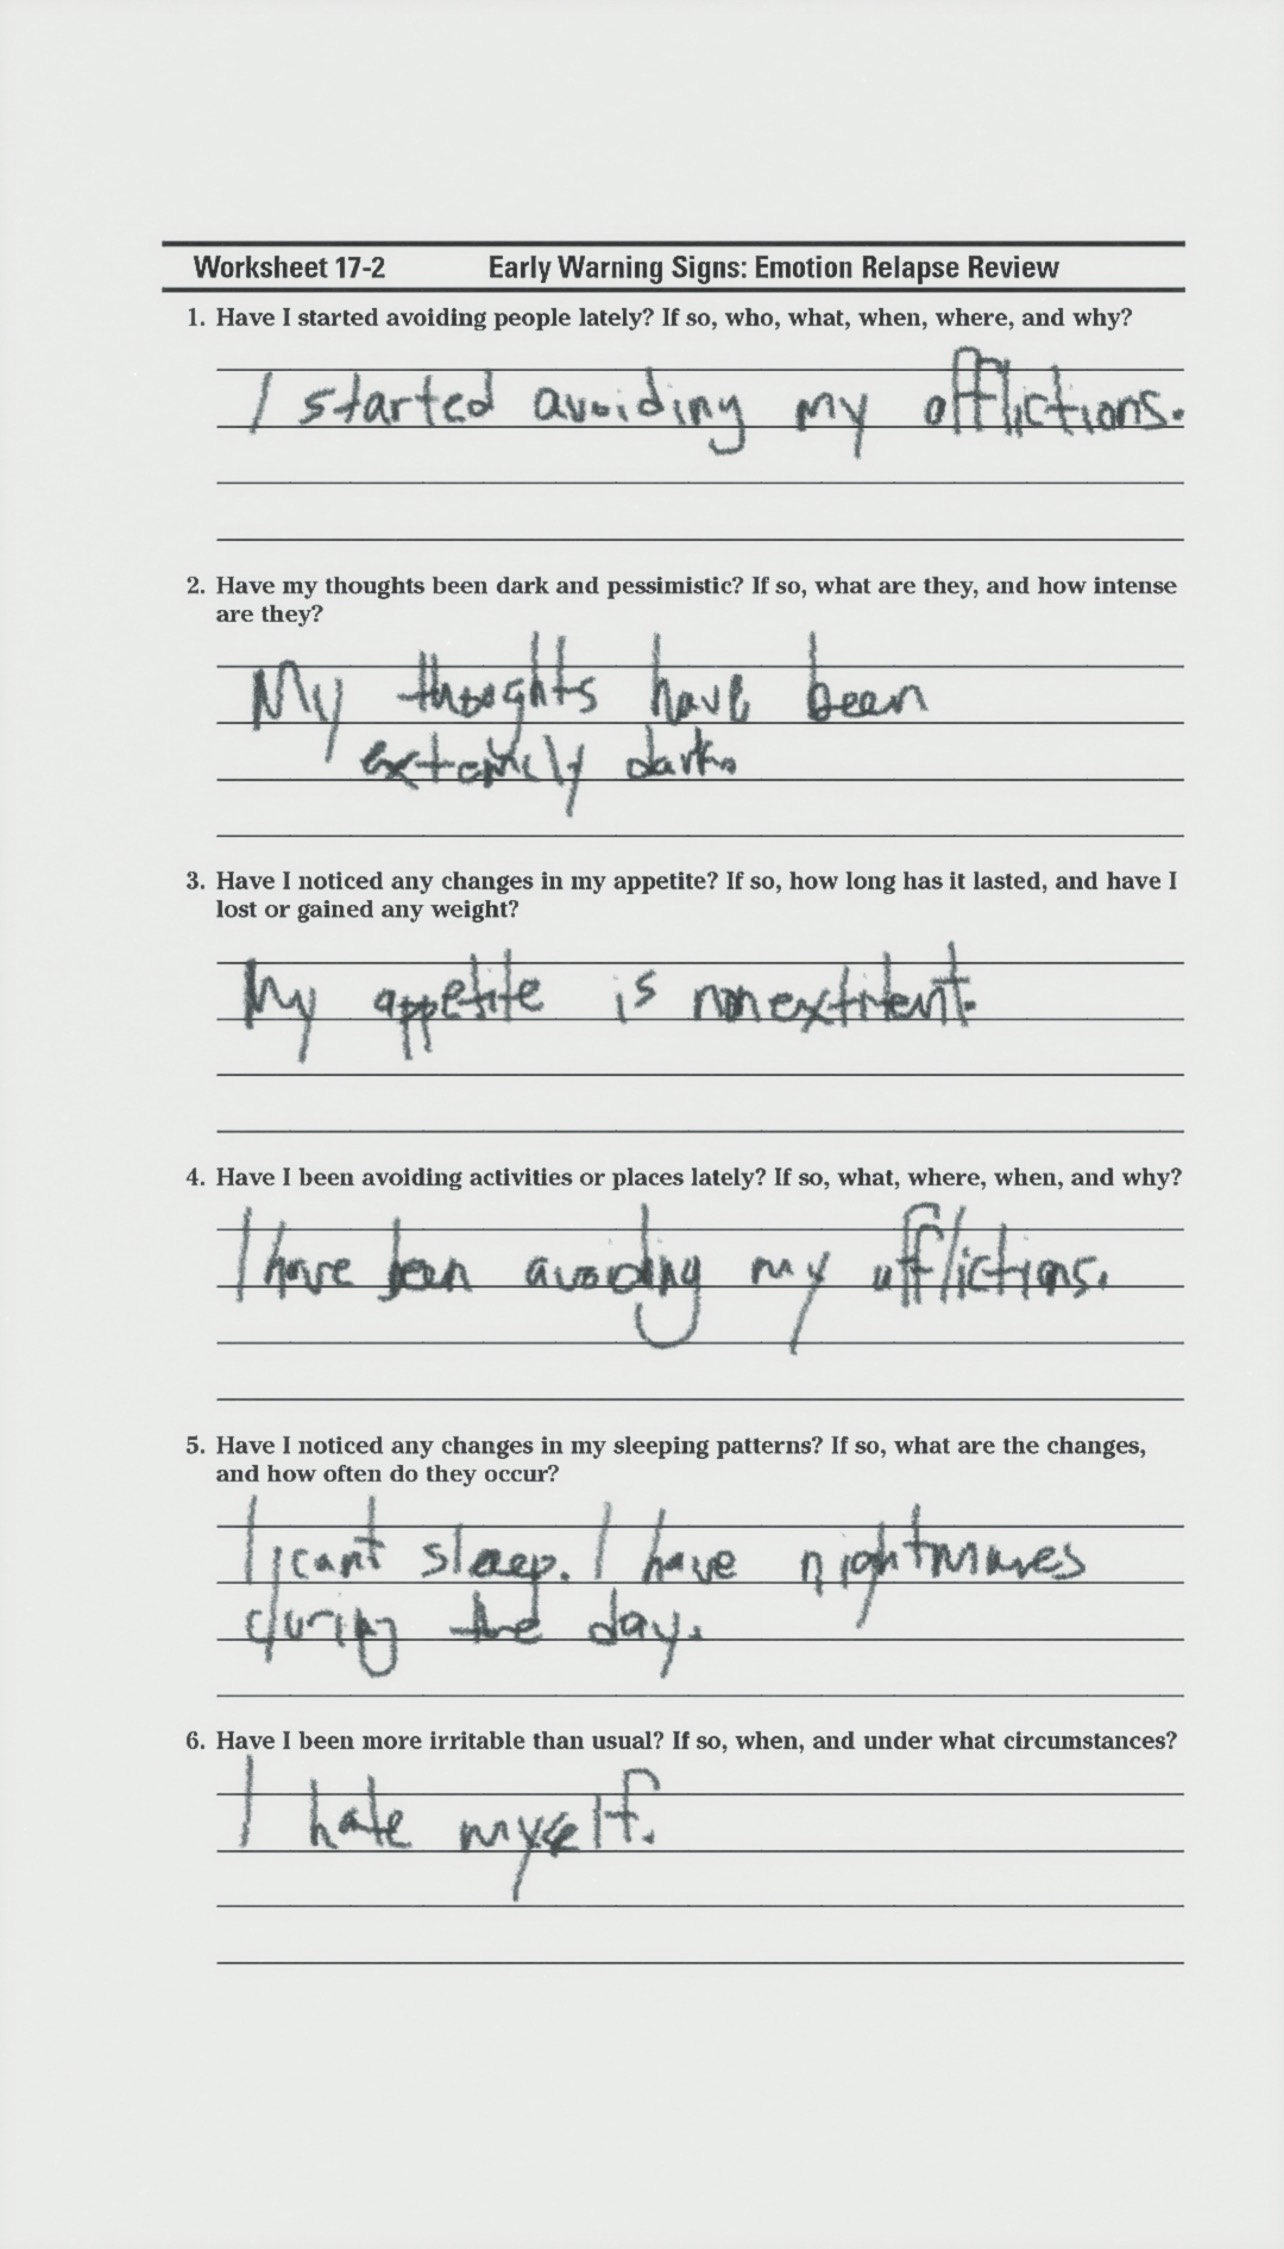 Worksheet 17-2 Early Warning Signs: Emotion Relapse Review
1. Have I started avoiding people lately? If so, who, what, when, where, and why?
I started avoiding my afflictions.
2. Have my thoughts been dark and pessimistic? If so, what are they, and how intense
are they?
My thoughts have been
dark.
3. Have I noticed any changes in my appetite? If so, how long has it lasted, and have I
lost or gained any weight?
My appetite is
4. Have I been avoiding activities or places lately? If so, what, where, when, and why?
I have been avoiding my afflictions.
5. Have I noticed any changes in my sleeping patterns? If so, what are the changes,
and how often do they occur?
I cant sleep. I have nightmares
during the day.
6. Have I been more irritable than usual? If so, when, and under what circumstances?
I hate myself.